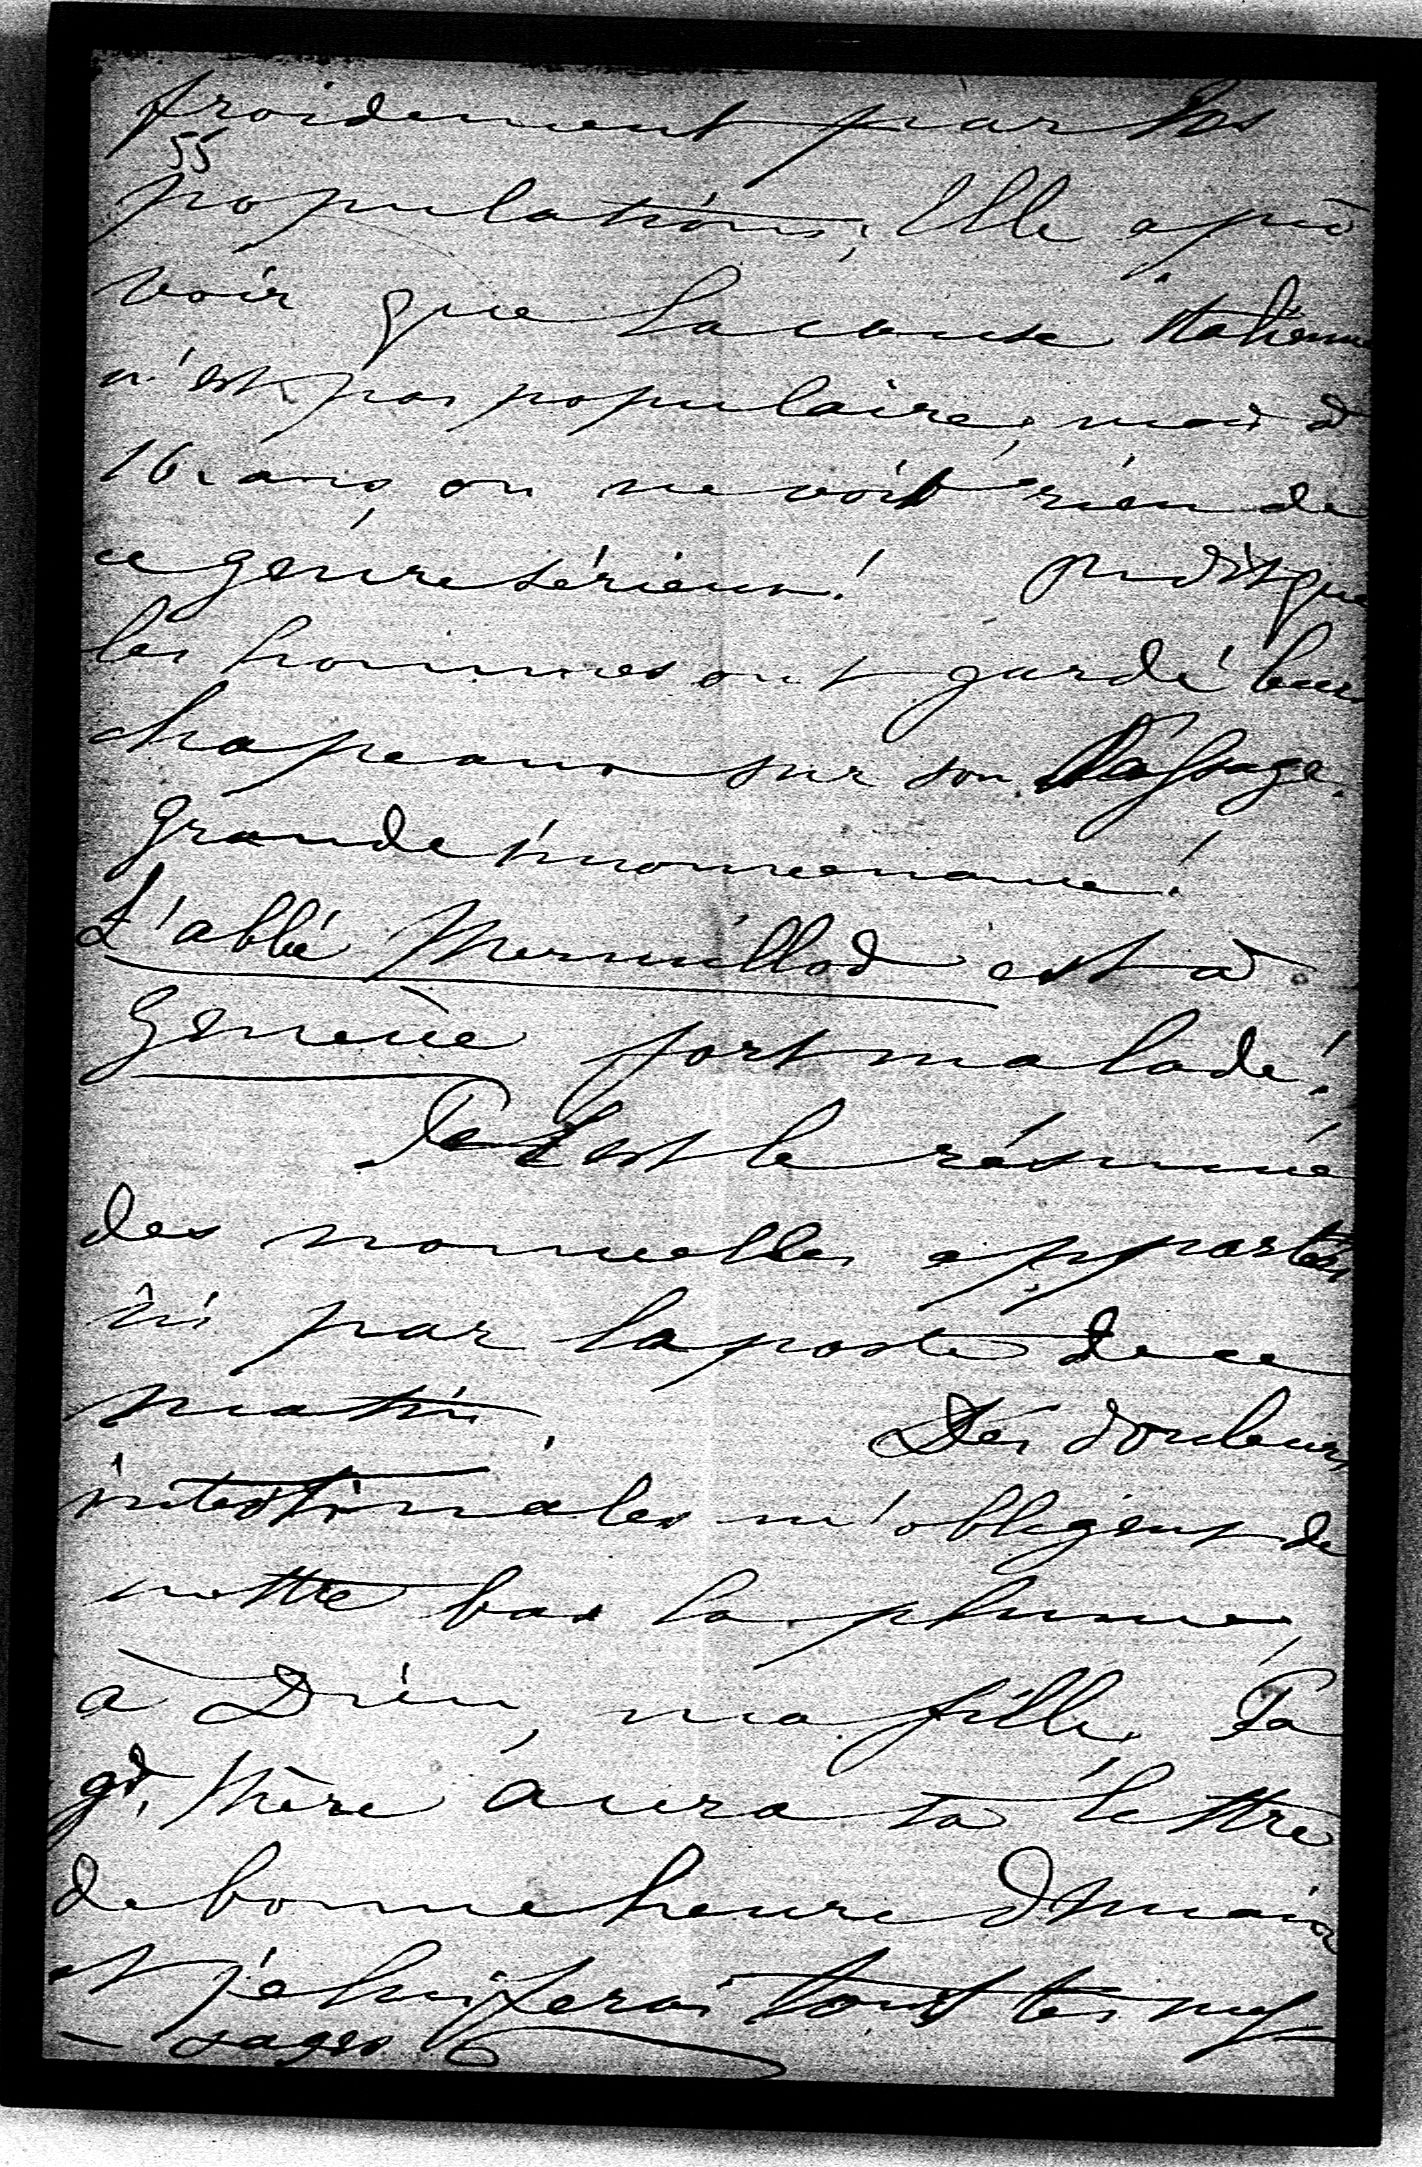 froidement par les
55
populations, Elle a pu
voir que la cause italienne
n'est pas populaire, mais à
16 ans, on ne voit rien de
ce genre sérieux! On dit que
les hommes ont gardé leurs
chapeaux sur son Passage.
grande inconvenance!
L'abbé Mermillod est à
Genève fort malade!
Tel est le résumé
des nouvelles apportées
ici par la poste de ce
matin. Des douleurs
intestinales m'obligent de
mettre bas la plume,
à Dieu, ma fille, Ta
gd. Mère aura ta lettre
de bonne heure demain
et je lui ferai tous tes mes-
sages